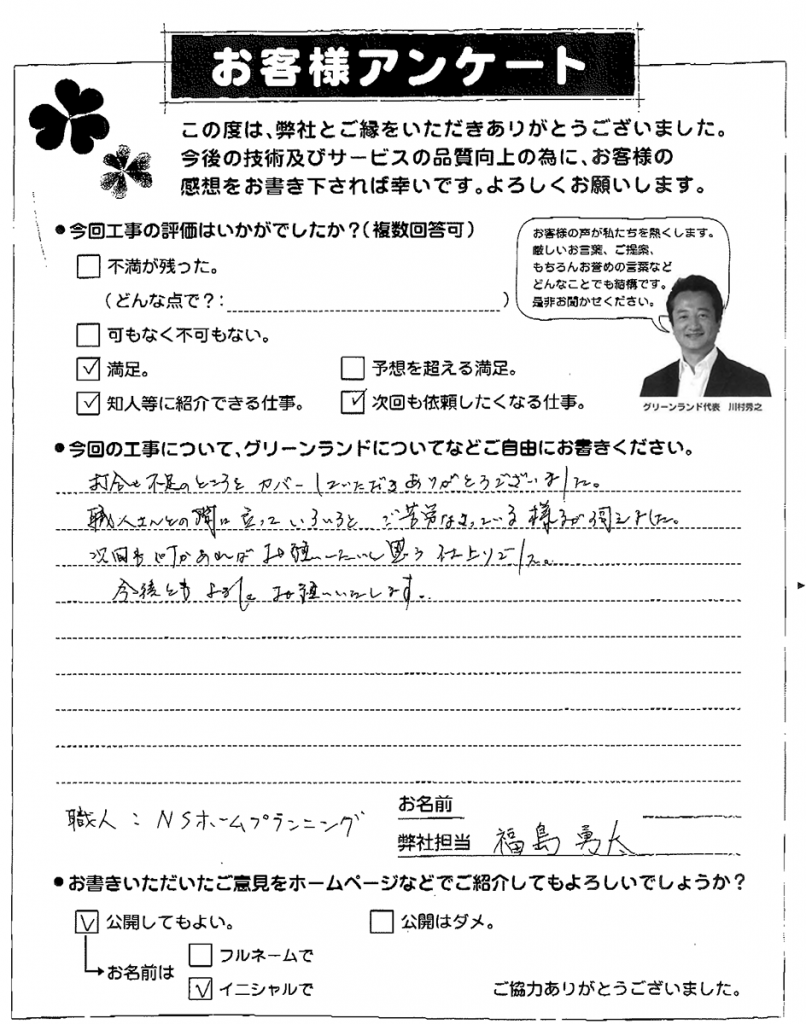 お客様アンケート
この度は、弊社とご縁をいただきありがとうございました。
今後の技術及びサービスの品質向上の為に、お客様の
感想をお書き下されば幸いです。よろしくお願いします。
●今回工事の評価はいかがでしたか？（複数回答可）
不満が残った。
（どんな点で？：　　　）
可もなく不可もない。
満足。
予想を超える満足。
知人等に紹介できる仕事。
次回も依頼したくなる仕事。
お客様の声が私たちを熱くします。
厳しいお言葉、ご提案、
もちろんお誉めの言葉など
どんなことでも結構です。
是非お聞かせください。
グリーンランド代表　川村秀之
●今回の工事について、グリーンランドについてなどご自由にお書きください。
打合せ不足のところを カバーしていただきありがとうございました。
職人さんとの間に立って いろいろと ご苦労なさっている様子が伺えました。
次回も何かあれば お願いしたいと思う 仕上りでした。
今後とも よろしく お願いいたします。
職人：NSホームプランニング
お名前
弊社担当 福島 勇太
●お書きいただいたご意見をホームページなどでご紹介してもよろしいでしょうか？
公開してもよい。
公開はダメ。
お名前は
フルネームで
イニシャルで
ご協力ありがとうございました。